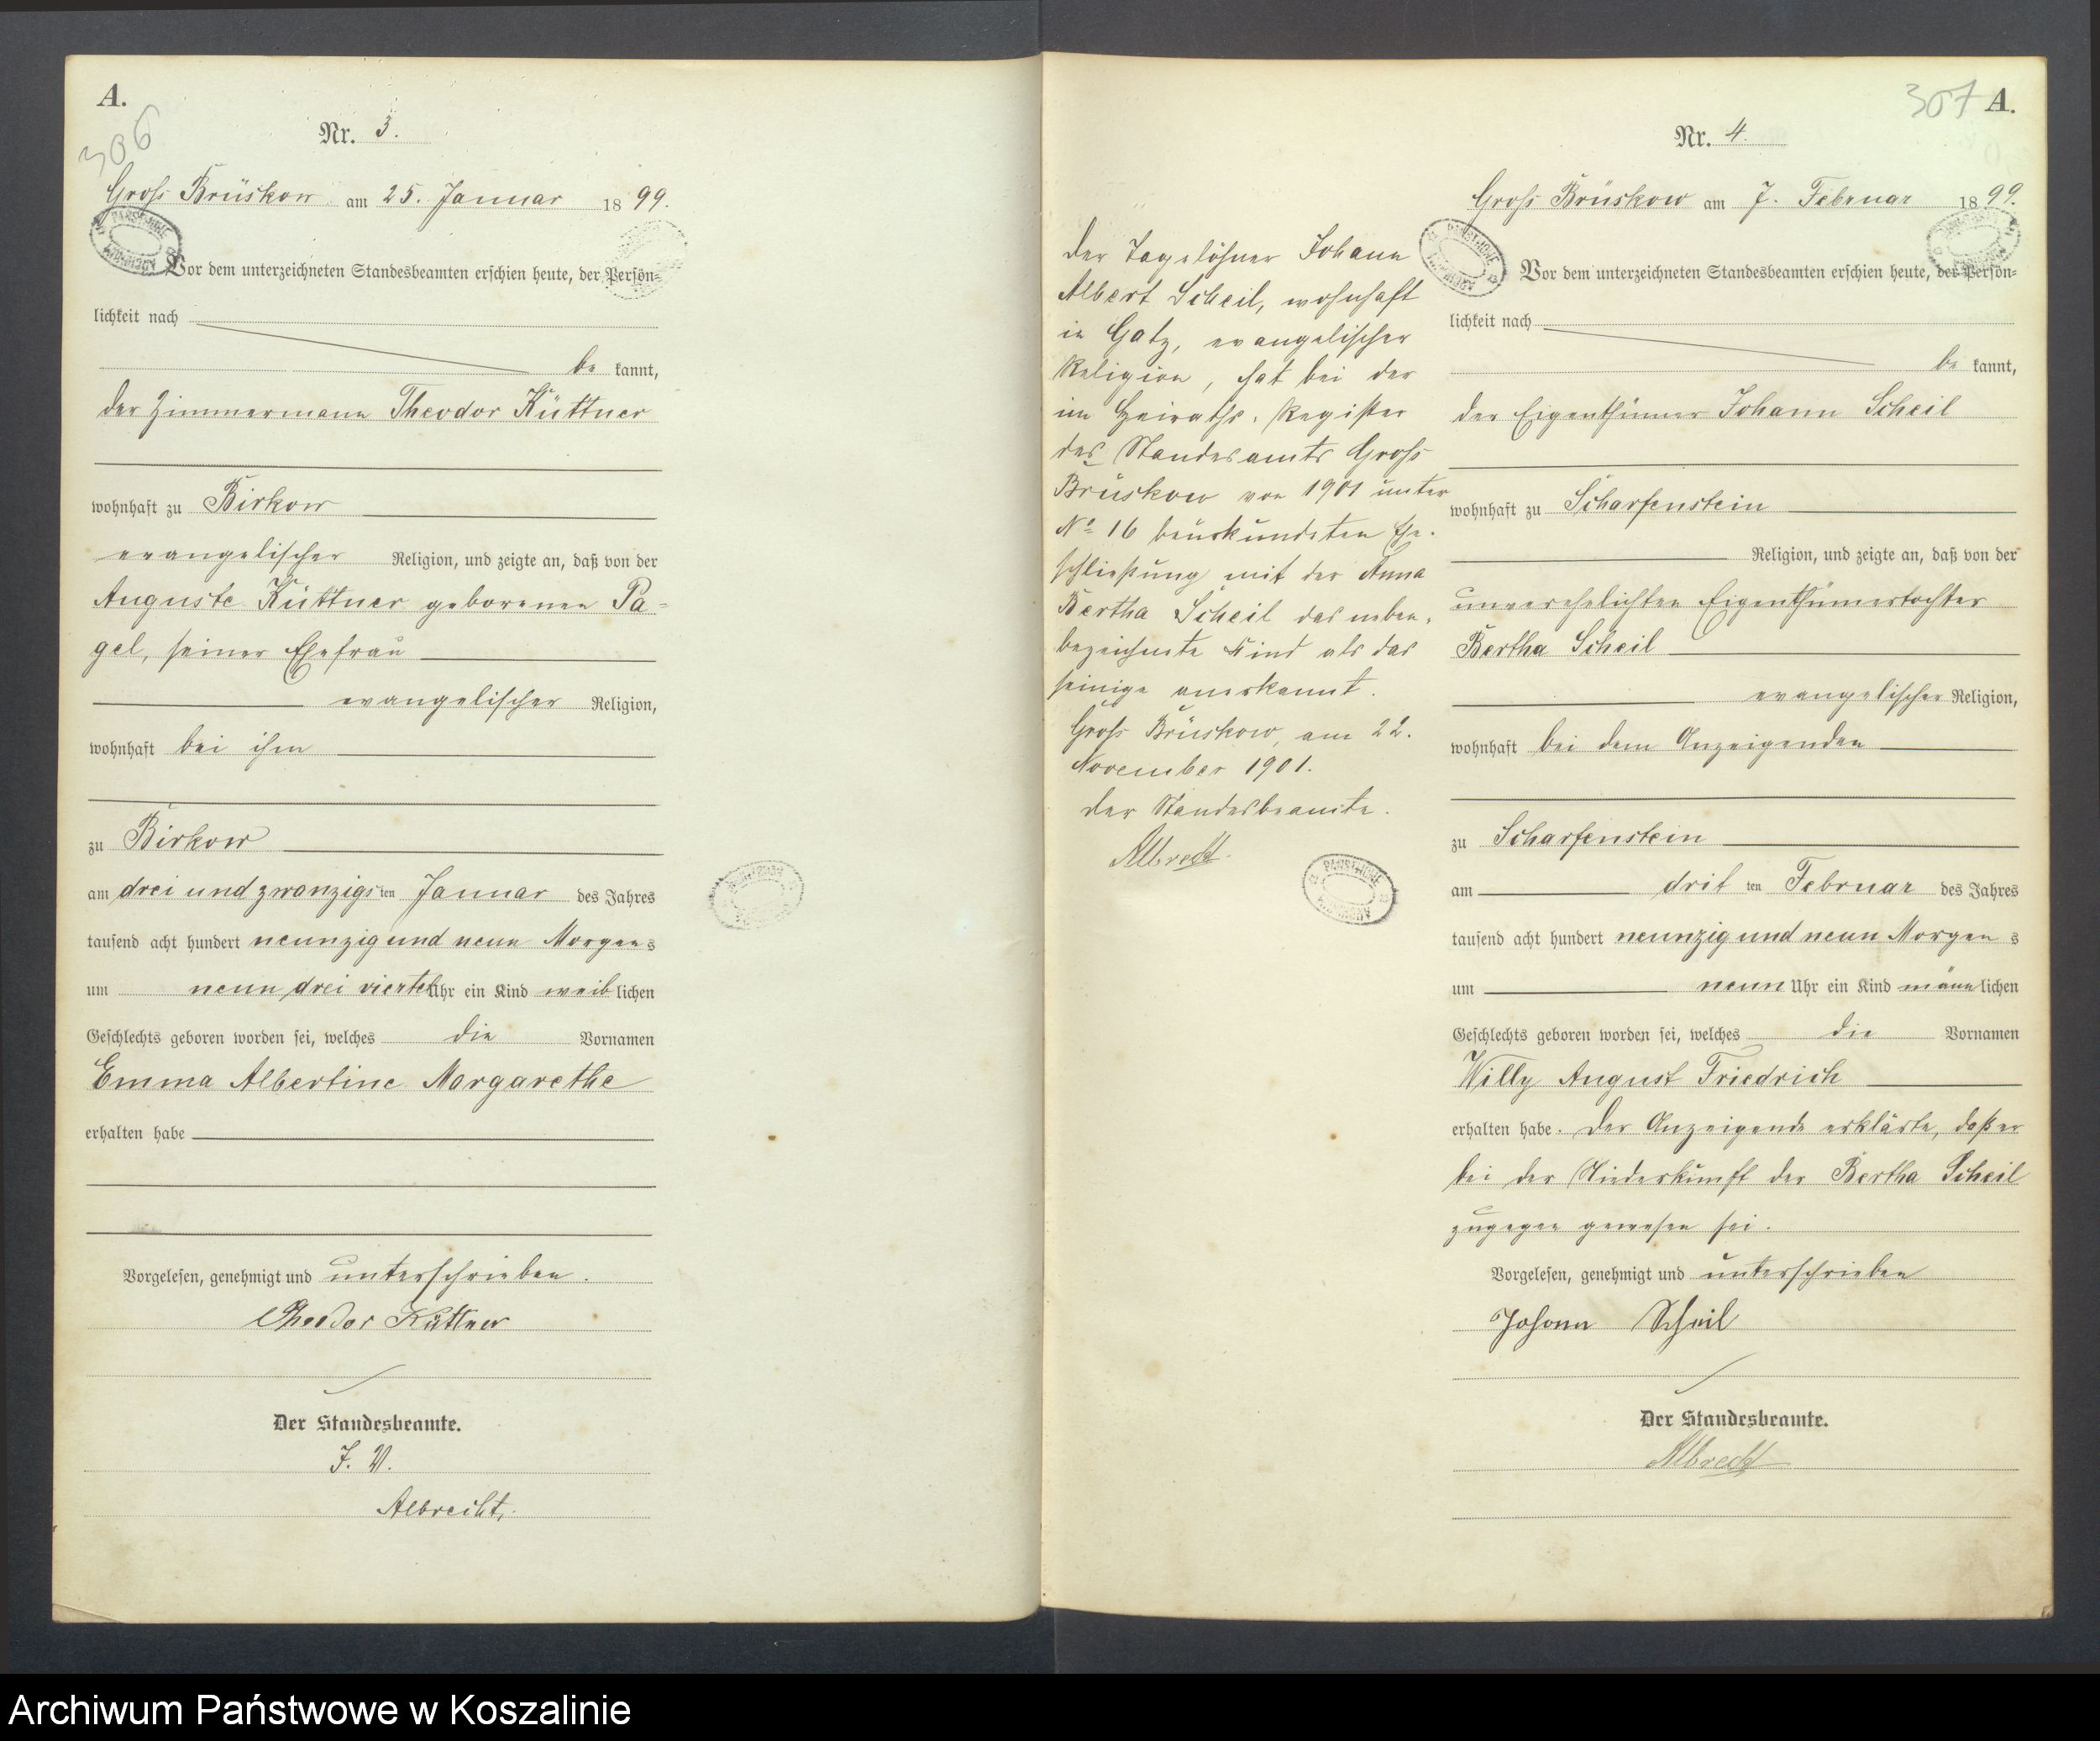 A.
306
Nr. 3.
Gross Brüskow am 25. Januar 1899.
Vor dem unterzeichneten Standesbeamten erschien heute, der Persön-
lichkeit nach
be kannt,
der Zimmermann Theodor Küttner
wohnhaft zu Birkow
evangelischer Religion, und zeigte an, daß von der
Auguste Küttner geborenen Pa-
gel, seiner Ehefrau
evangelischer Religion,
wohnhaft bei ihm
zu Birkow
am drei und zwanzigsten Januar des Jahres
tausend acht hundert neunzig und neun Morgens
um neun drei viertel Uhr ein Kind weiblichen
Geschlechts geboren worden sei, welches die Vornamen
Emma Albertine Margarethe
erhalten habe
Vorgelesen, genehmigt und unterschrieben.
Theodor Küttner
Der Standesbeamte.
J. V.
Albrecht.
Der Tagelöhner Johann
Albert Scheil, wohnhaft
in Gatz, evangelischer
Religion, hat bei der
im Heiraths-Register
des Standesamts Gross
Brüskow von 1901 unter
No 16 beurkundeten Ehe-
schließung mit der Anna
Bertha Scheil das neben-
bezeichnete Kind als das
seinige anerkannt.
Gross Brüskow, am 22.
November 1901.
Der Standesbeamte.
Albrecht.
307 A.
Nr. 4.
Gross Brüskow am 7. Februar 1899.
Vor dem unterzeichneten Standesbeamten erschien heute, der Persön-
lichkeit nach
be kannt,
der Eigenthümer Johann Scheil
wohnhaft zu Scharfenstein
Religion, und zeigte an, daß von der
unverehelichten Eigenthümertochter
Bertha Scheil
evangelischer Religion,
wohnhaft bei dem Anzeigenden
zu Scharfenstein
am dritten Februar des Jahres
tausend acht hundert neunzig und neun Morgens
um neun Uhr ein Kind männlichen
Geschlechts geboren worden sei, welches die Vornamen
Willy August Friedrich
erhalten habe. Der Anzeigende erklärte, daß er
bei der Niederkunft der Bertha Scheil
zugegen gewesen sei.
Vorgelesen, genehmigt und unterschrieben
Johann Scheil
Der Standesbeamte.
Albrecht
Archiwum Państwowe w Koszalinie